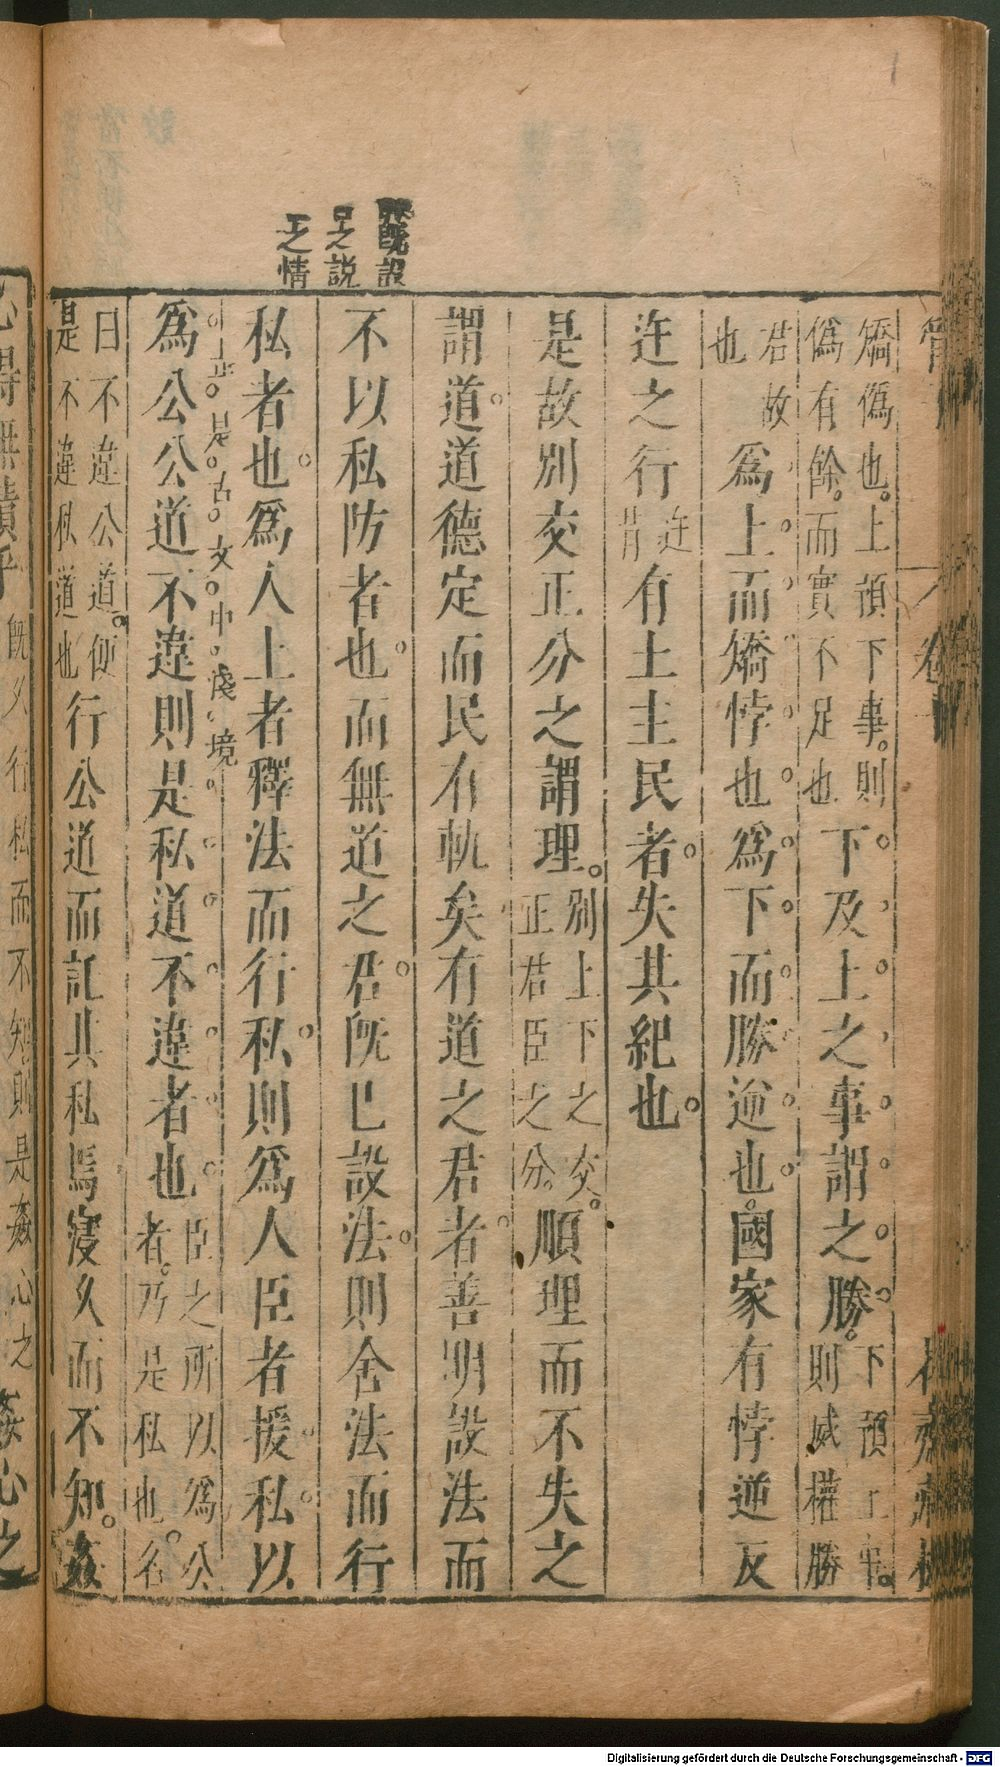 管子 卷十 花齋藏板
矯偽也。上預下事。則
偽有餘。而實不足也
下及上之事謂之勝。
下預上事。
則威權勝
君故
也
爲上而矯悖也爲下而勝逆也。國家有悖逆反
迕之行
迕
背
有土主民者失其紀也。
是故別交正分之謂理。
別上下之交。
正君臣之分。
順理而不失之
謂道道德定而民有軌矣有道之君者善明設法而
旣設
之說
之情
不以私防者也而無道之君旣已設法則舍法而行
私者也爲人上者釋法而行私則爲人臣者援私以
是古文中 境
爲公公道不違則是私道不違者也
臣之所以爲公
者。乃是私也。名
曰不違公道。便
是不違私道也
行公道而託其私焉寖久而不知。姦
心得無積乎
旣久行私而不知則是姦心之
姦心之
Digitalisierung gefördert durch die Deutsche Forschungsgemeinschaft - DFG